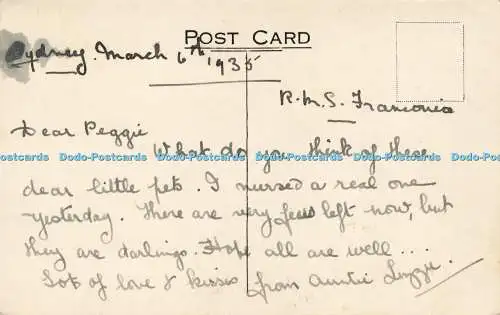 POST CARD
Sydney. March 6th 1935
R.M.S. Franconia
Dear Peggie
What do you think of these
Dodo-Postcards Dodo-Postcards Dodo-Postcards Dodo-Postcards Dodo-Postcards
dear little pets. I nursed a real one
yesterday. There are very few left now, but
they are darlings. Hope all are well ....
Lots of love & kisses from Auntie Lizzie.